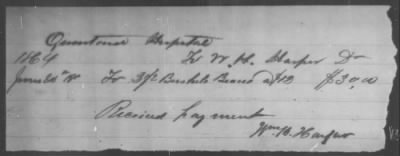 Quantome Hospital
1864 To W. H. Harper Dr
June 20th To 3 Bushels Beans a $10 $30.00
Received payment
Wm H. Harper